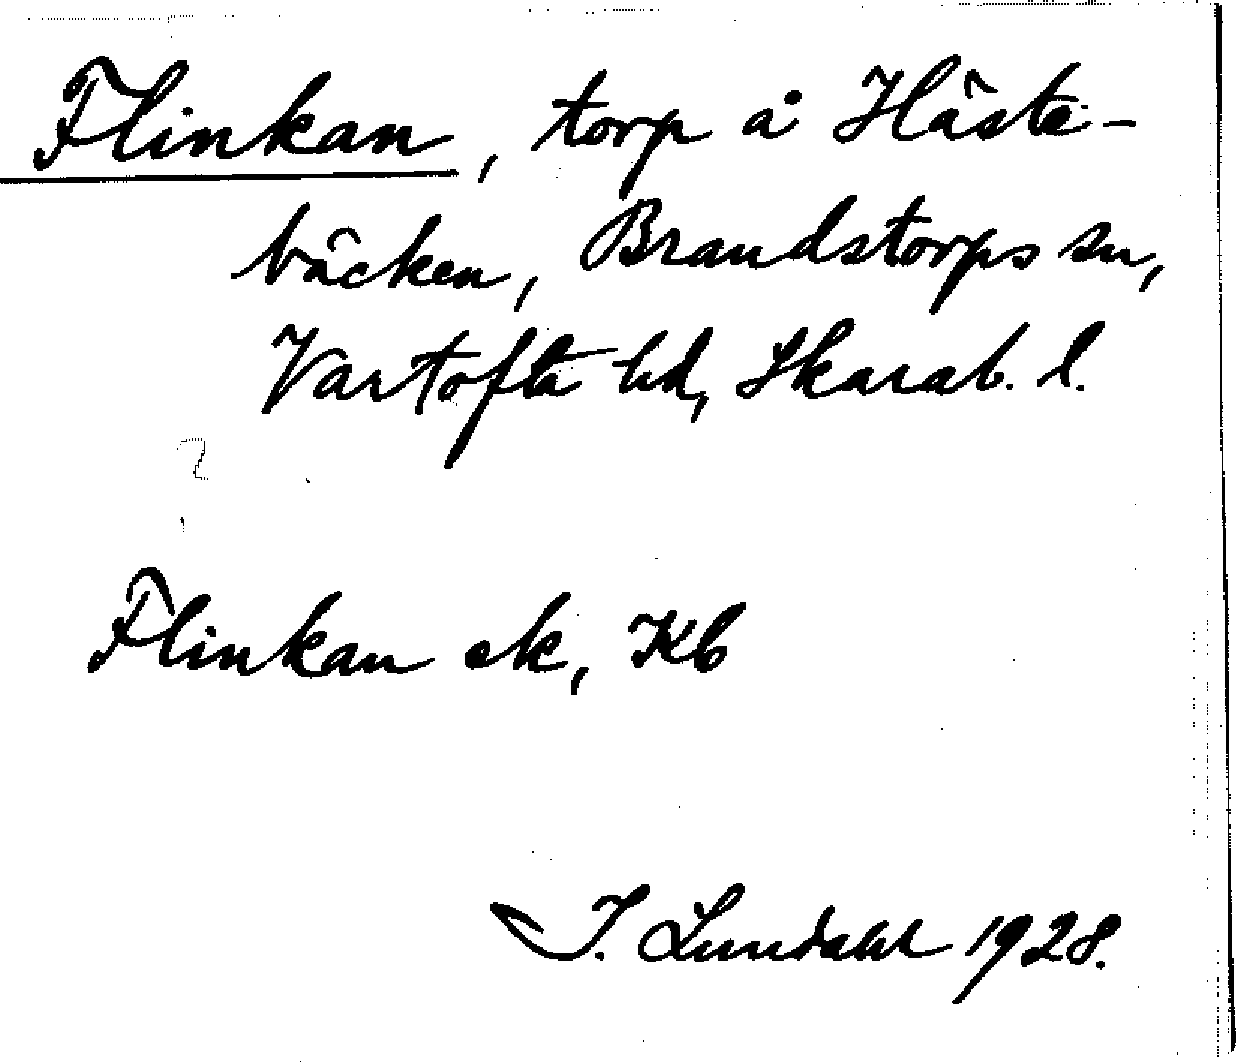 Flinkan, torp å Häste-
bäcken, Brandstorps sn,
Vartofta hd, Skarab. l.
Flinkan ek, Kb
I. Lundahl 1928.